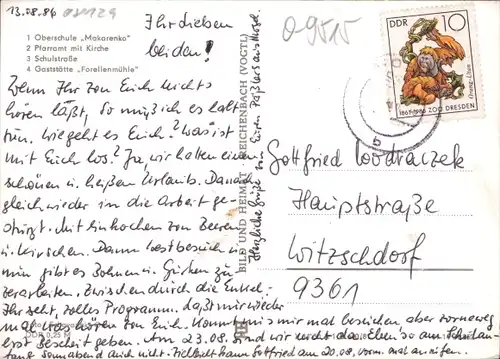 13.08.86
Ihr lieben
beiden!
1 Oberschule „Makarenko"
2 Pfarramt mit Kirche
3 Schulstraße
4 Gaststätte „Forellenmühle"
Wenn Ihr von Euch nichts
hören läßt, so muß ich es halt
tun. Wie geht es Euch? Was ist
mit Euch los? Ja, wir hatten einen
schönen u. heißen Urlaub. Danach
gleich wieder in die Arbeit ge-
stürzt. Mit einkochen von Beeren
u. Kirschen. Dann Westbesuch u.
nun gibt es Bohnen u. Gurken zu
verarbeiten. Zwischendurch die Enkel.
Ihr seht, volles Programm. Laßt mir wieder
mal was hören von Euch. Kommt uns mal besuchen, aber vorneweg
erst Bescheid geben. Am 23.08. sind wir nicht da. Eben so am
Sonnabend auch nicht. Vielleicht kann Gottfried am 20.08. vorn mal anrufen.
BILD UND HEIMAT REICHENBACH (VOGTL)
Herzliche Grüße von
O-9515
DDR 10
1861-1986 ZOO DRESDEN
Orang-Utan
Gottfried Wodraczek
Hauptstraße
Witzschdorf
9361